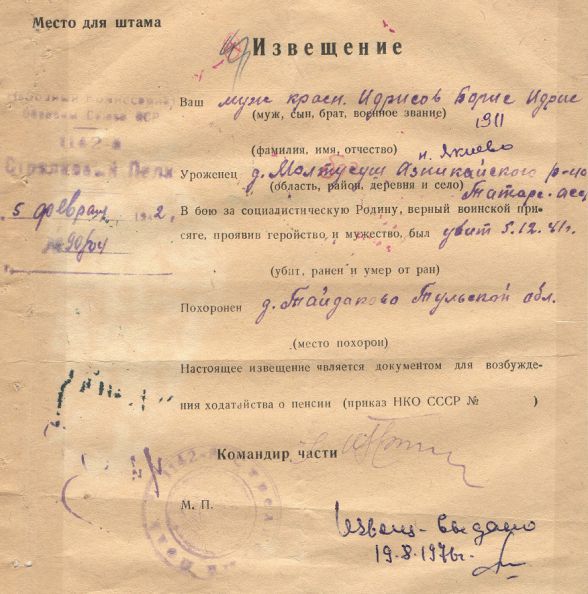 Место для штампа
Извещение
Народный Комиссариат
Обороны Союза ССР
1142-й
Стрелковый Полк
5 февраля 1942 г.
№ 90/04
Ваш муж красн. Идрисов Борис Идрис
(муж, сын, брат, военное звание)
1911
(фамилия, имя, отчество)
Уроженец д. Молтусуш Азникайского р-на
(область, район, деревня и село) Татарс. асср
В бою за социалистическую Родину, верный воинской при-
сяге, проявив геройство и мужество, был убит 5.12.41г.
(убит, ранен и умер от ран)
Похоронен д. Тайдаково Тульской обл.
(место похорон)
Настоящее извещение является документом для возбужде-
ния ходатайства о пенсии (приказ НКО СССР № )
Командир части
М. П.
1142-й Стрел
Извещ- выдано
19.8.1976г.